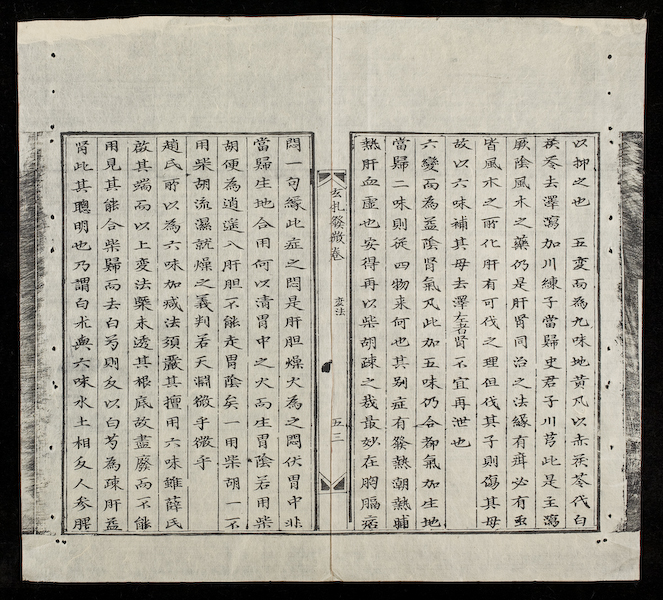 以抑之也　五變而為九味地黃凡以赤茯苓代白
茯苓去澤瀉加川練子當歸史君子川芎此是主瀉
厥陰風木之藥仍是肝腎同治之法緣有疳必有虫
皆風木之所化肝有可伐之理但伐其子則傷其母
故以六味補其母去澤左者腎不宜再泄也
六變而為益陰腎氣凡此加五味仍合都氣加生地
當歸二味則從四物來何也其別症有發熱潮熱晡
熱肝血虛也安得再以柴胡疎之哉最妙在胸膈痞
玄机發微卷　变法　五三
悶一句緣此症之悶是肝胆燥火為之悶伏胃中非
當歸生地合用何以清胃中之火而生胃陰若用柴
胡便為逍遥入肝胆不能走胃陰矣一用柴胡一不
用柴胡流濕就燥之義判若天淵微乎微乎
趙氏所以為六味加减法須嚴其擅用六味雖薛氏
啟其端而以上变法藥未透其根底故盡廢而不能
用見其能合柴歸而去白芍則反以白芍為疎肝益
腎此其聰明也乃謂白朮與六味水土相反人参脾